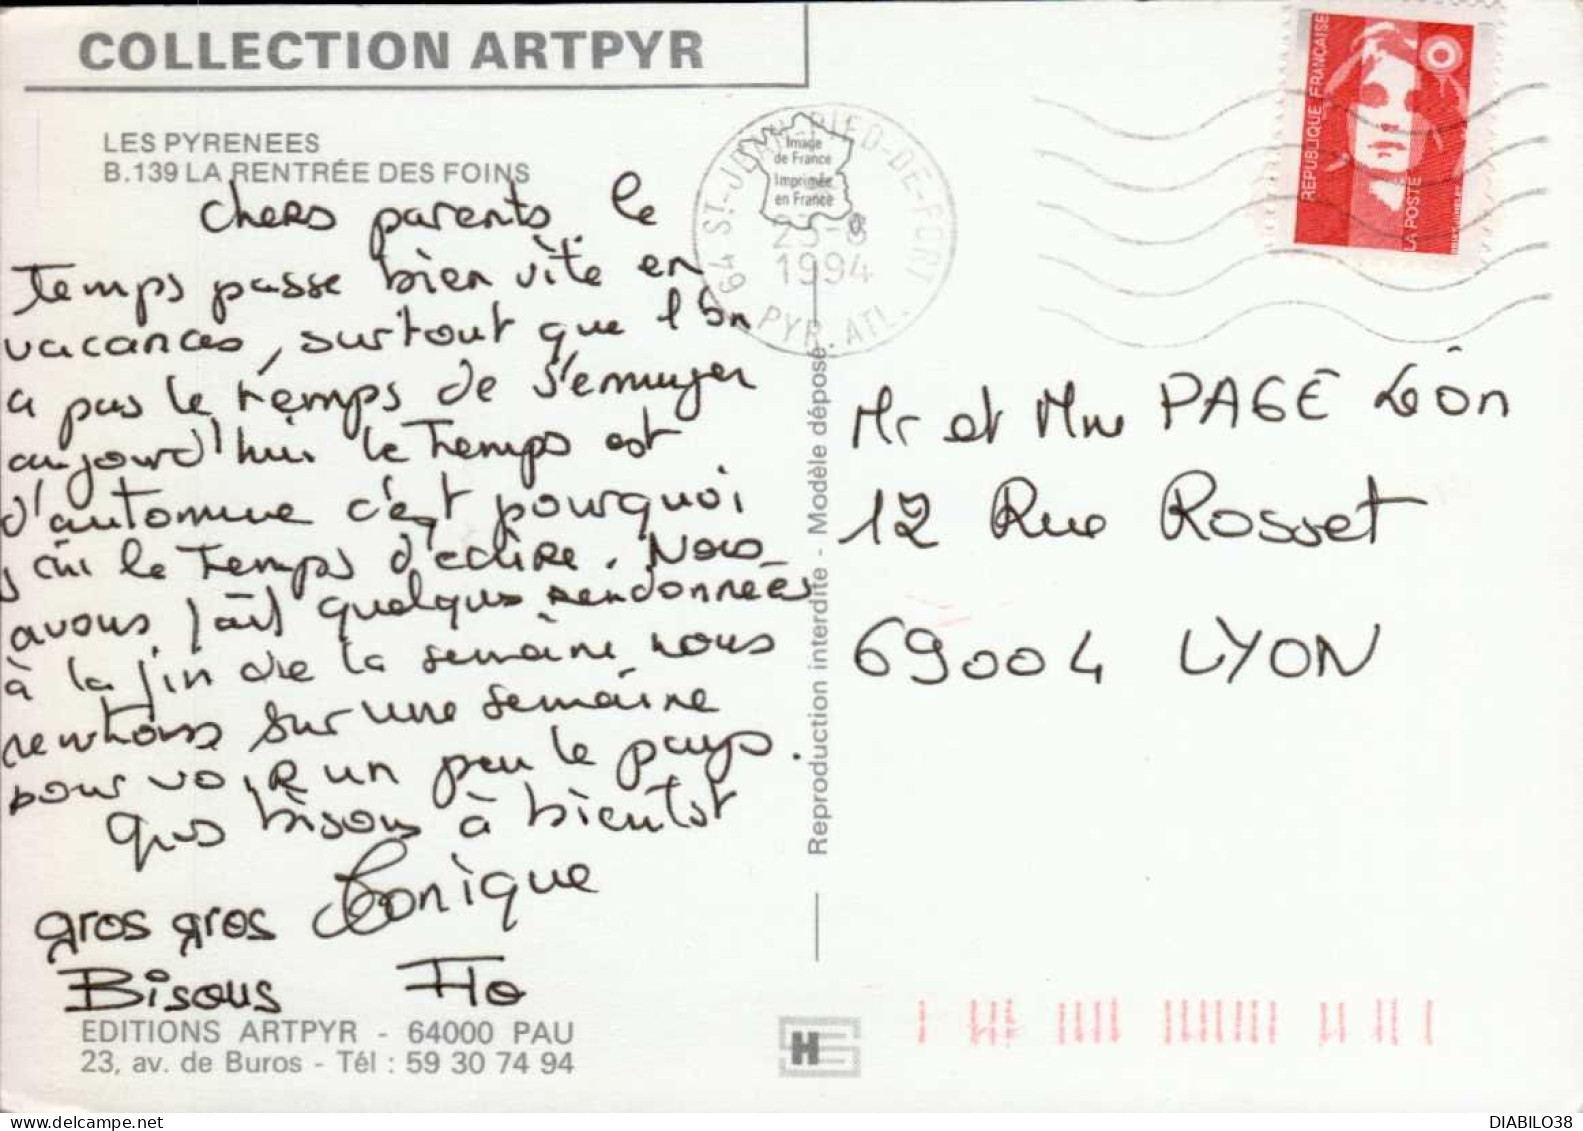 COLLECTION ARTPYR
LES PYRENEES
B.139 LA RENTRÉE DES FOINS
Chers parents. le
temps passe bien vite en
vacances, surtout que l'on
a pas le temps de s'ennuyer
aujourd'hui le temps est
d'automne c'est pourquoi
j'ai le temps d'ecrire. Nous
avons fait quelques rendonnées
à la fin de la semaine, nous
rentrons sur une semaine
pour voir un peu le pays.
gros bisous à bientôt
Monique
gros gros
Bisous Flo
EDITIONS ARTPYR - 64000 PAU
23, av. de Buros - Tél : 59 30 74 94
Image
de France
Imprimée
en France
64 ST-JEAN-PIED-DE-PORT
1994
PYR. ATL.
Reproduction interdite - Modèle déposé
REPUBLIQUE FRANÇAISE
LA POSTE
Mr et Mme PAGE Léon
12 Rue Rosset
69004 LYON
DIABILO38